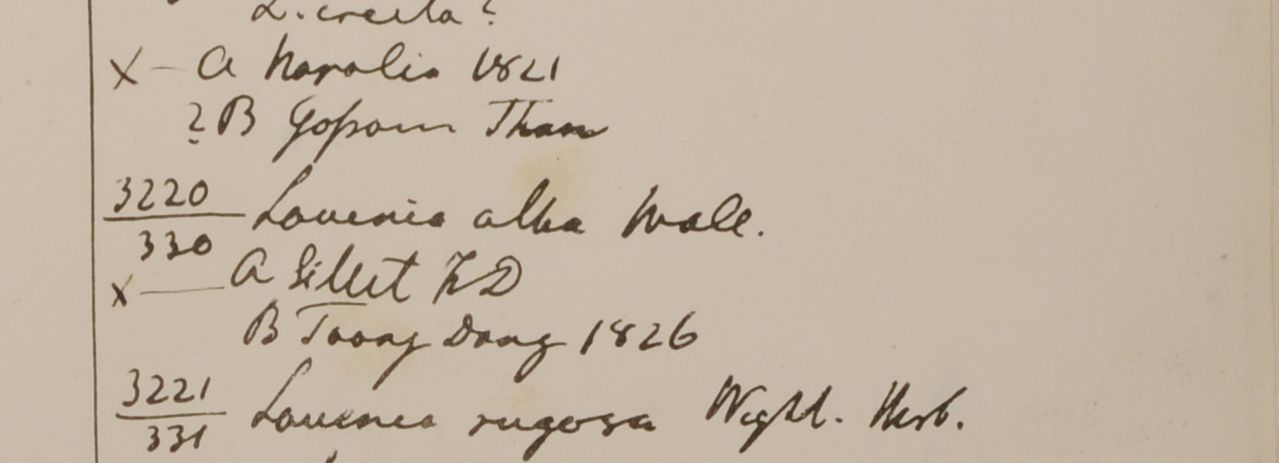 L. erecta?
X — A Napalia 1821
? B Gossain Than
3220
330
Lavenia alba Wall.
x — A Sillet FD
B Taong Dong 1826
3221
331
Lavenia rugosa Wight. Herb.